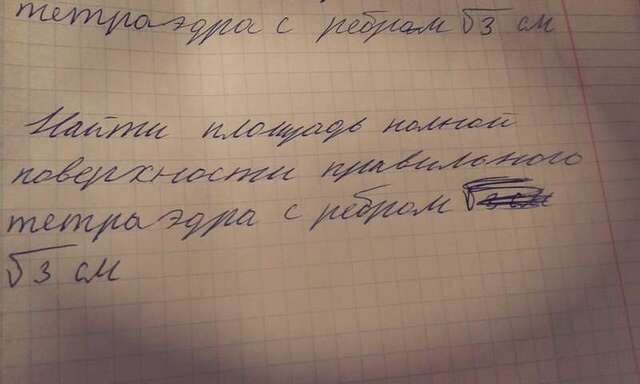 тетраэдра с ребром √3 см
Найти площадь полной
поверхности правильного
тетраэдра с ребром
√3 см